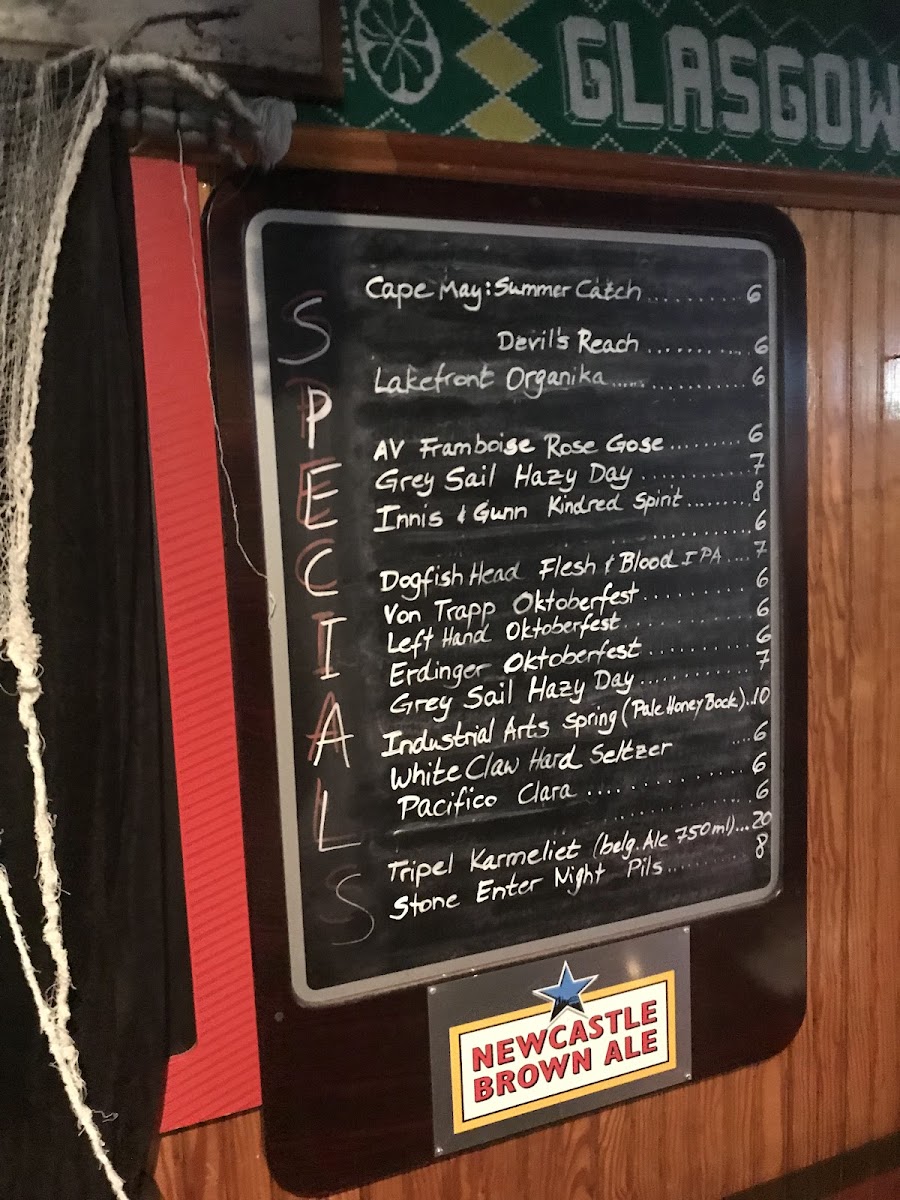 GLASGOW
SPECIALS
Cape May: Summer Catch ......... 6
Devil's Reach ............ 6
Lakefront Organika .............. 6
AV Framboise Rose Gose ......... 6
Grey Sail Hazy Day ........... 7
Innis & Gunn Kindred Spirit ........ 8
........... 6
Dogfish Head Flesh & Blood IPA .... 7
Von Trapp Oktoberfest ........... 6
Left Hand Oktoberfest ............ 6
Erdinger Oktoberfest .......... 6
Grey Sail Hazy Day ........... 7
Industrial Arts Spring (Pale Honey Bock) .. 10
White Claw Hard Seltzer .... 6
Pacifico Clara ............ 6
............ 6
Tripel Karmeliet (belg. Ale 750 ml) ... 20
Stone Enter Night Pils ......... 8
NEWCASTLE
BROWN ALE